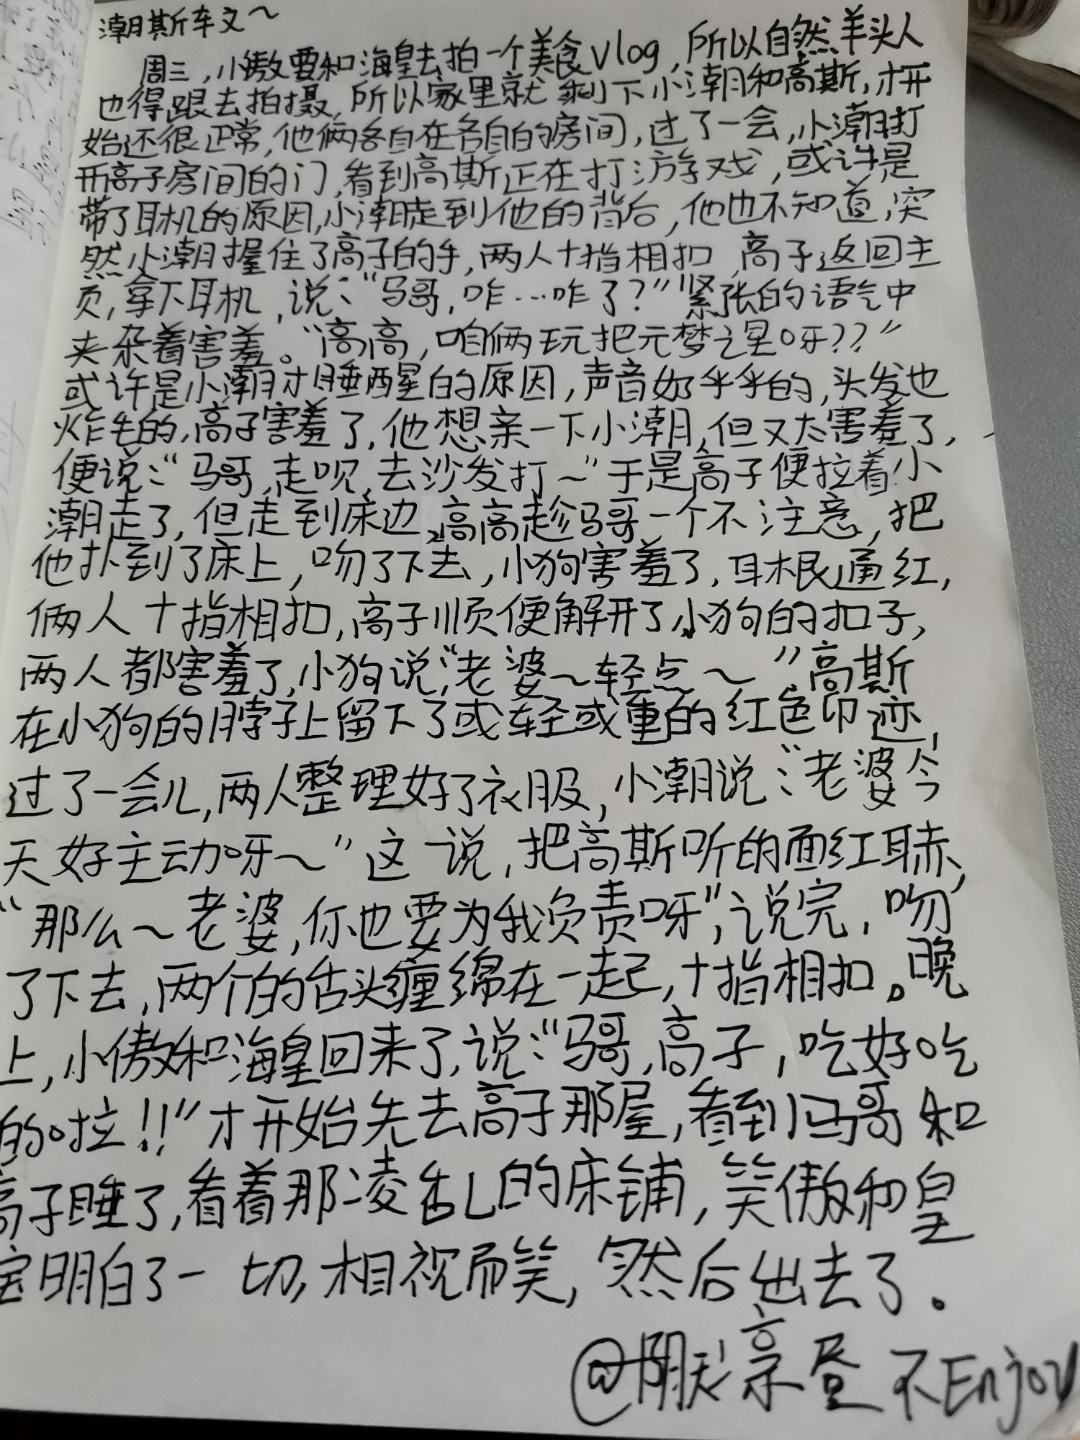 潮斯车文～
周三，小傲要和海皇去拍一个美食vlog，所以自然羊头人
也得跟去拍摄，所以家里就剩下小潮和高斯，才开
始还很正常，他俩各自在各自的房间，过了一会，小潮打
开高子房间的门，看到高斯正在打游戏，或许是
带了耳机的原因，小潮走到他的背后，他也不知道，突
然，小潮握住了高子的手，两人十指相扣，高子返回主
页，拿下耳机，说：“马哥，咋…咋了？”紧张的语气中
夹杂着害羞。“高高，咱俩玩把元梦之星呀？？”
或许是小潮才睡醒的原因，声音奶乎乎的，头发也
炸毛的，高子害羞了，他想亲一下小潮，但又太害羞了，
便说：“马哥，走呗，去沙发打～”于是高子便拉着小
潮走了，但走到床边，高高趁马哥一个不注意，把
他扑到了床上，吻了下去，小狗害羞了，耳根通红，
俩人十指相扣，高子顺便解开了小狗的扣子，
两人都害羞了，小狗说：“老婆～轻点～”，高斯
在小狗的脖子上留下了或轻或重的红色印迹，
过了一会儿，两人整理好了衣服，小潮说：“老婆今
天好主动呀～”这一说，把高斯听的面红耳赤，
“那么～老婆，你也要为我负责呀”，说完，吻
了下去，两个的舌头缠绵在一起，十指相扣。晚
上，小傲和海皇回来了，说：“马哥，高子，吃好吃
的啦！！”才开始先去高子那屋，看到小马哥和
高子睡了，看着那凌乱的床铺，笑傲和皇
宝明白了一切，相视而笑，然后出去了。
@阴 不Enjoy